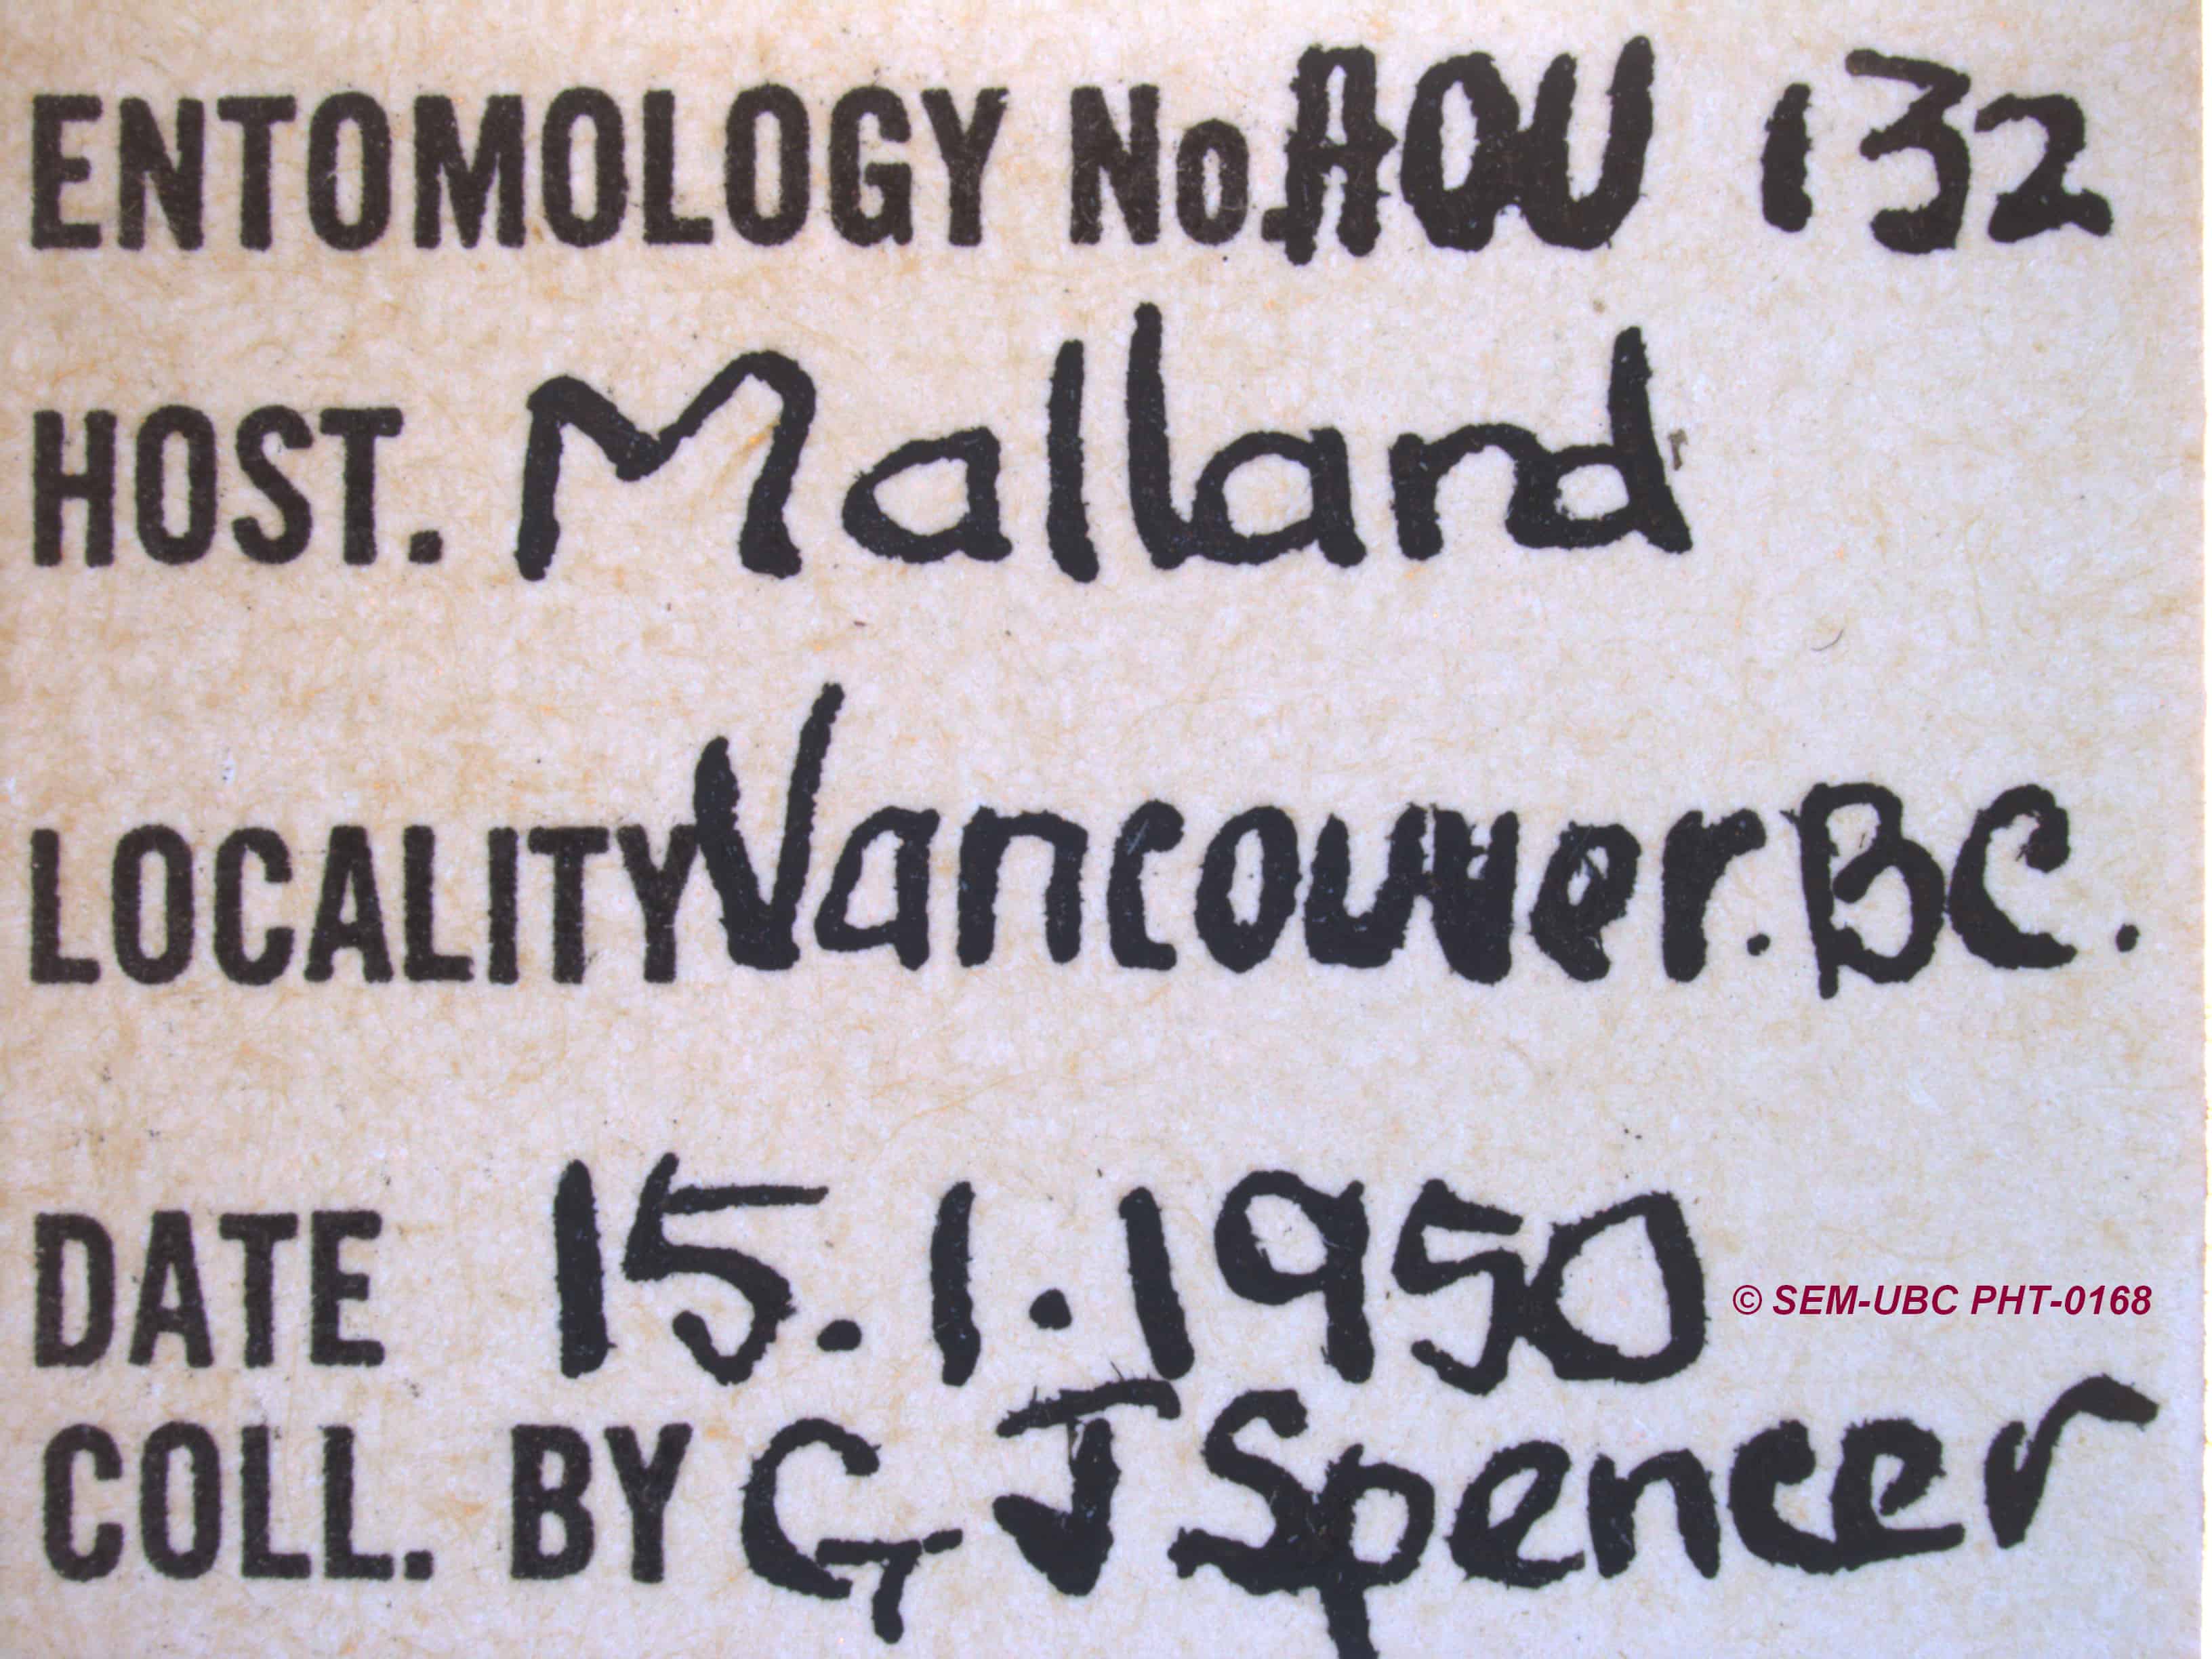 ENTOMOLOGY No. AOU 132
HOST. Mallard
LOCALITY Vancouver. BC.
DATE 15.1.1950
© SEM-UBC PHT-0168
COLL. BY G J Spencer